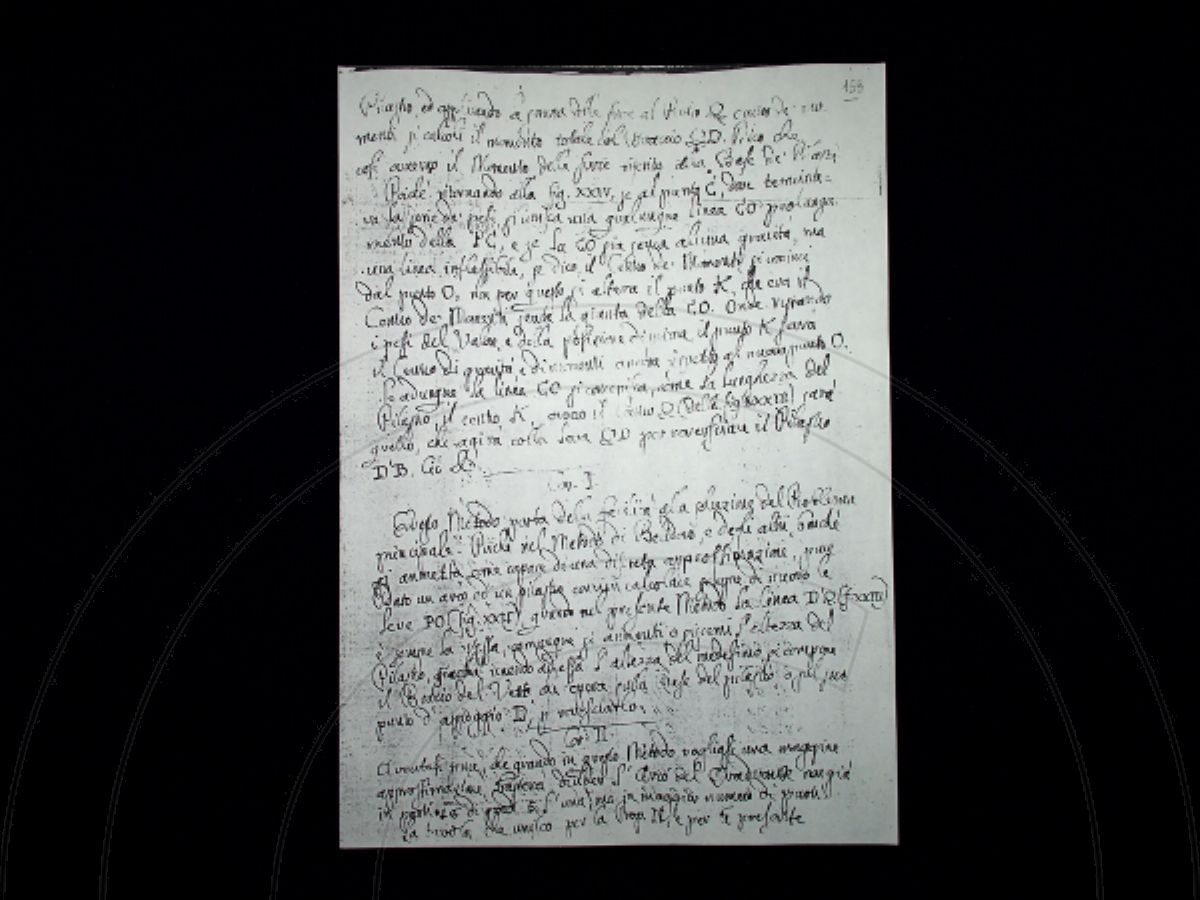 159
Pilastro, ed applicando la somma delle forze al
menti si calcoli il momento totale col Braccio QD. Dico che
così avremo il Momento della forze riferito alla Base de'
Poichè ritornando alla fig. XXIV, se al punto C, dove termina-
va la serie de' pesi, si unisca una qualunque linea CO prolunga-
mento della PC, e se la CO sia senza alcuna gravità, ma
una linea inflessibile, se dico, il Centro de' Momenti si cominci
dal punto O, non per questo si altera il punto K, che era il
Centro de' stante la giunta della CO. Onde
i pesi del Valore, e della posizione di prima, il punto K sarà
il Centro di gravità, e di momenti ancora rispetto al nuovo punto O.
Se adunque la linea CO si concepisca, come la lunghezza del
Pilastro, il centro K, ovvero il Centro Q (della fig. XXVII) sarà
quello, che agirà colla Leva QD per rovesciare il Pilastro
D'B. &c.
Cor. I.
Questo Metodo porta della facilità alla soluzione del Problema
principale. Poichè nel Metodo di Belidor, e degli altri, benchè
si ammetta come capace di una discreta approssimazione, pure
Dato un arco ed un pilastro, convien calcolare sempre di nuovo le
leve PO (fig. XXII), quando nel presente Metodo la linea D'Q (f. XXIII)
è sempre la stessa, comunque si aumenti o scemi l'altezza del
Pilastro, giacchè unendo ad essa l'altezza del medesimo, si compone
il Braccio del Vette che opera sulla Base del pilastro, o sul suo
punto d'appoggio D, per rovesciarlo.
Cor. II.
Avvertasi pria, che quando in questo Metodo vogliasi una maggiore
approssimazione, dividere l'Arco del Quadrante non già
in porzioni di l'una, ma in maggior numero di
la per la e per la presente